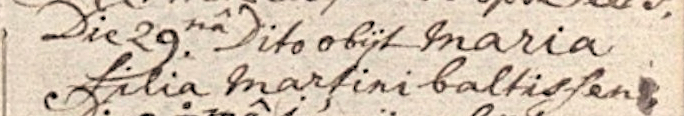 Die 29.nâ Dito obijt Maria
filia Martini baltissen